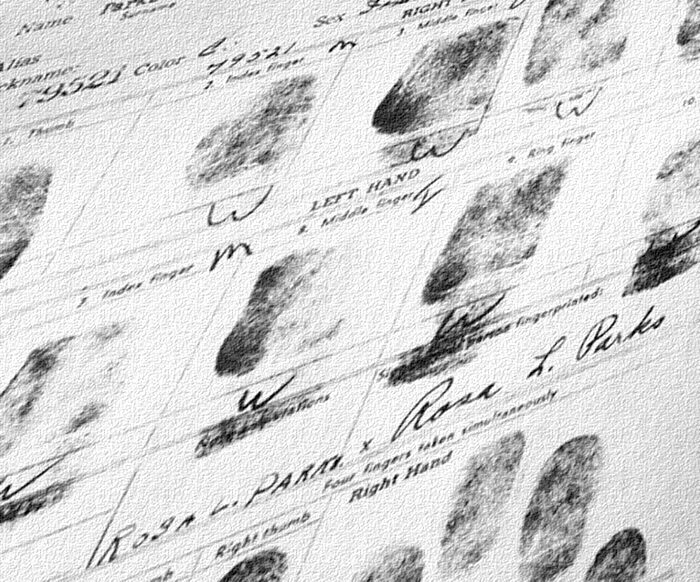 Name
Surname
Alias
Sex
RIGHT
3. Middle Finger
79521 Color C.
79521
2. Index Finger
m
1. Thumb
W
W
W
LEFT HAND
8. Middle Finger
9. Ring Finger
m
7. Index Finger
W
W
W
person fingerprinted:
W
Rosa L. Parks
Rosa L. Parks x
Four fingers taken simultaneously
Right Hand
Right thumb